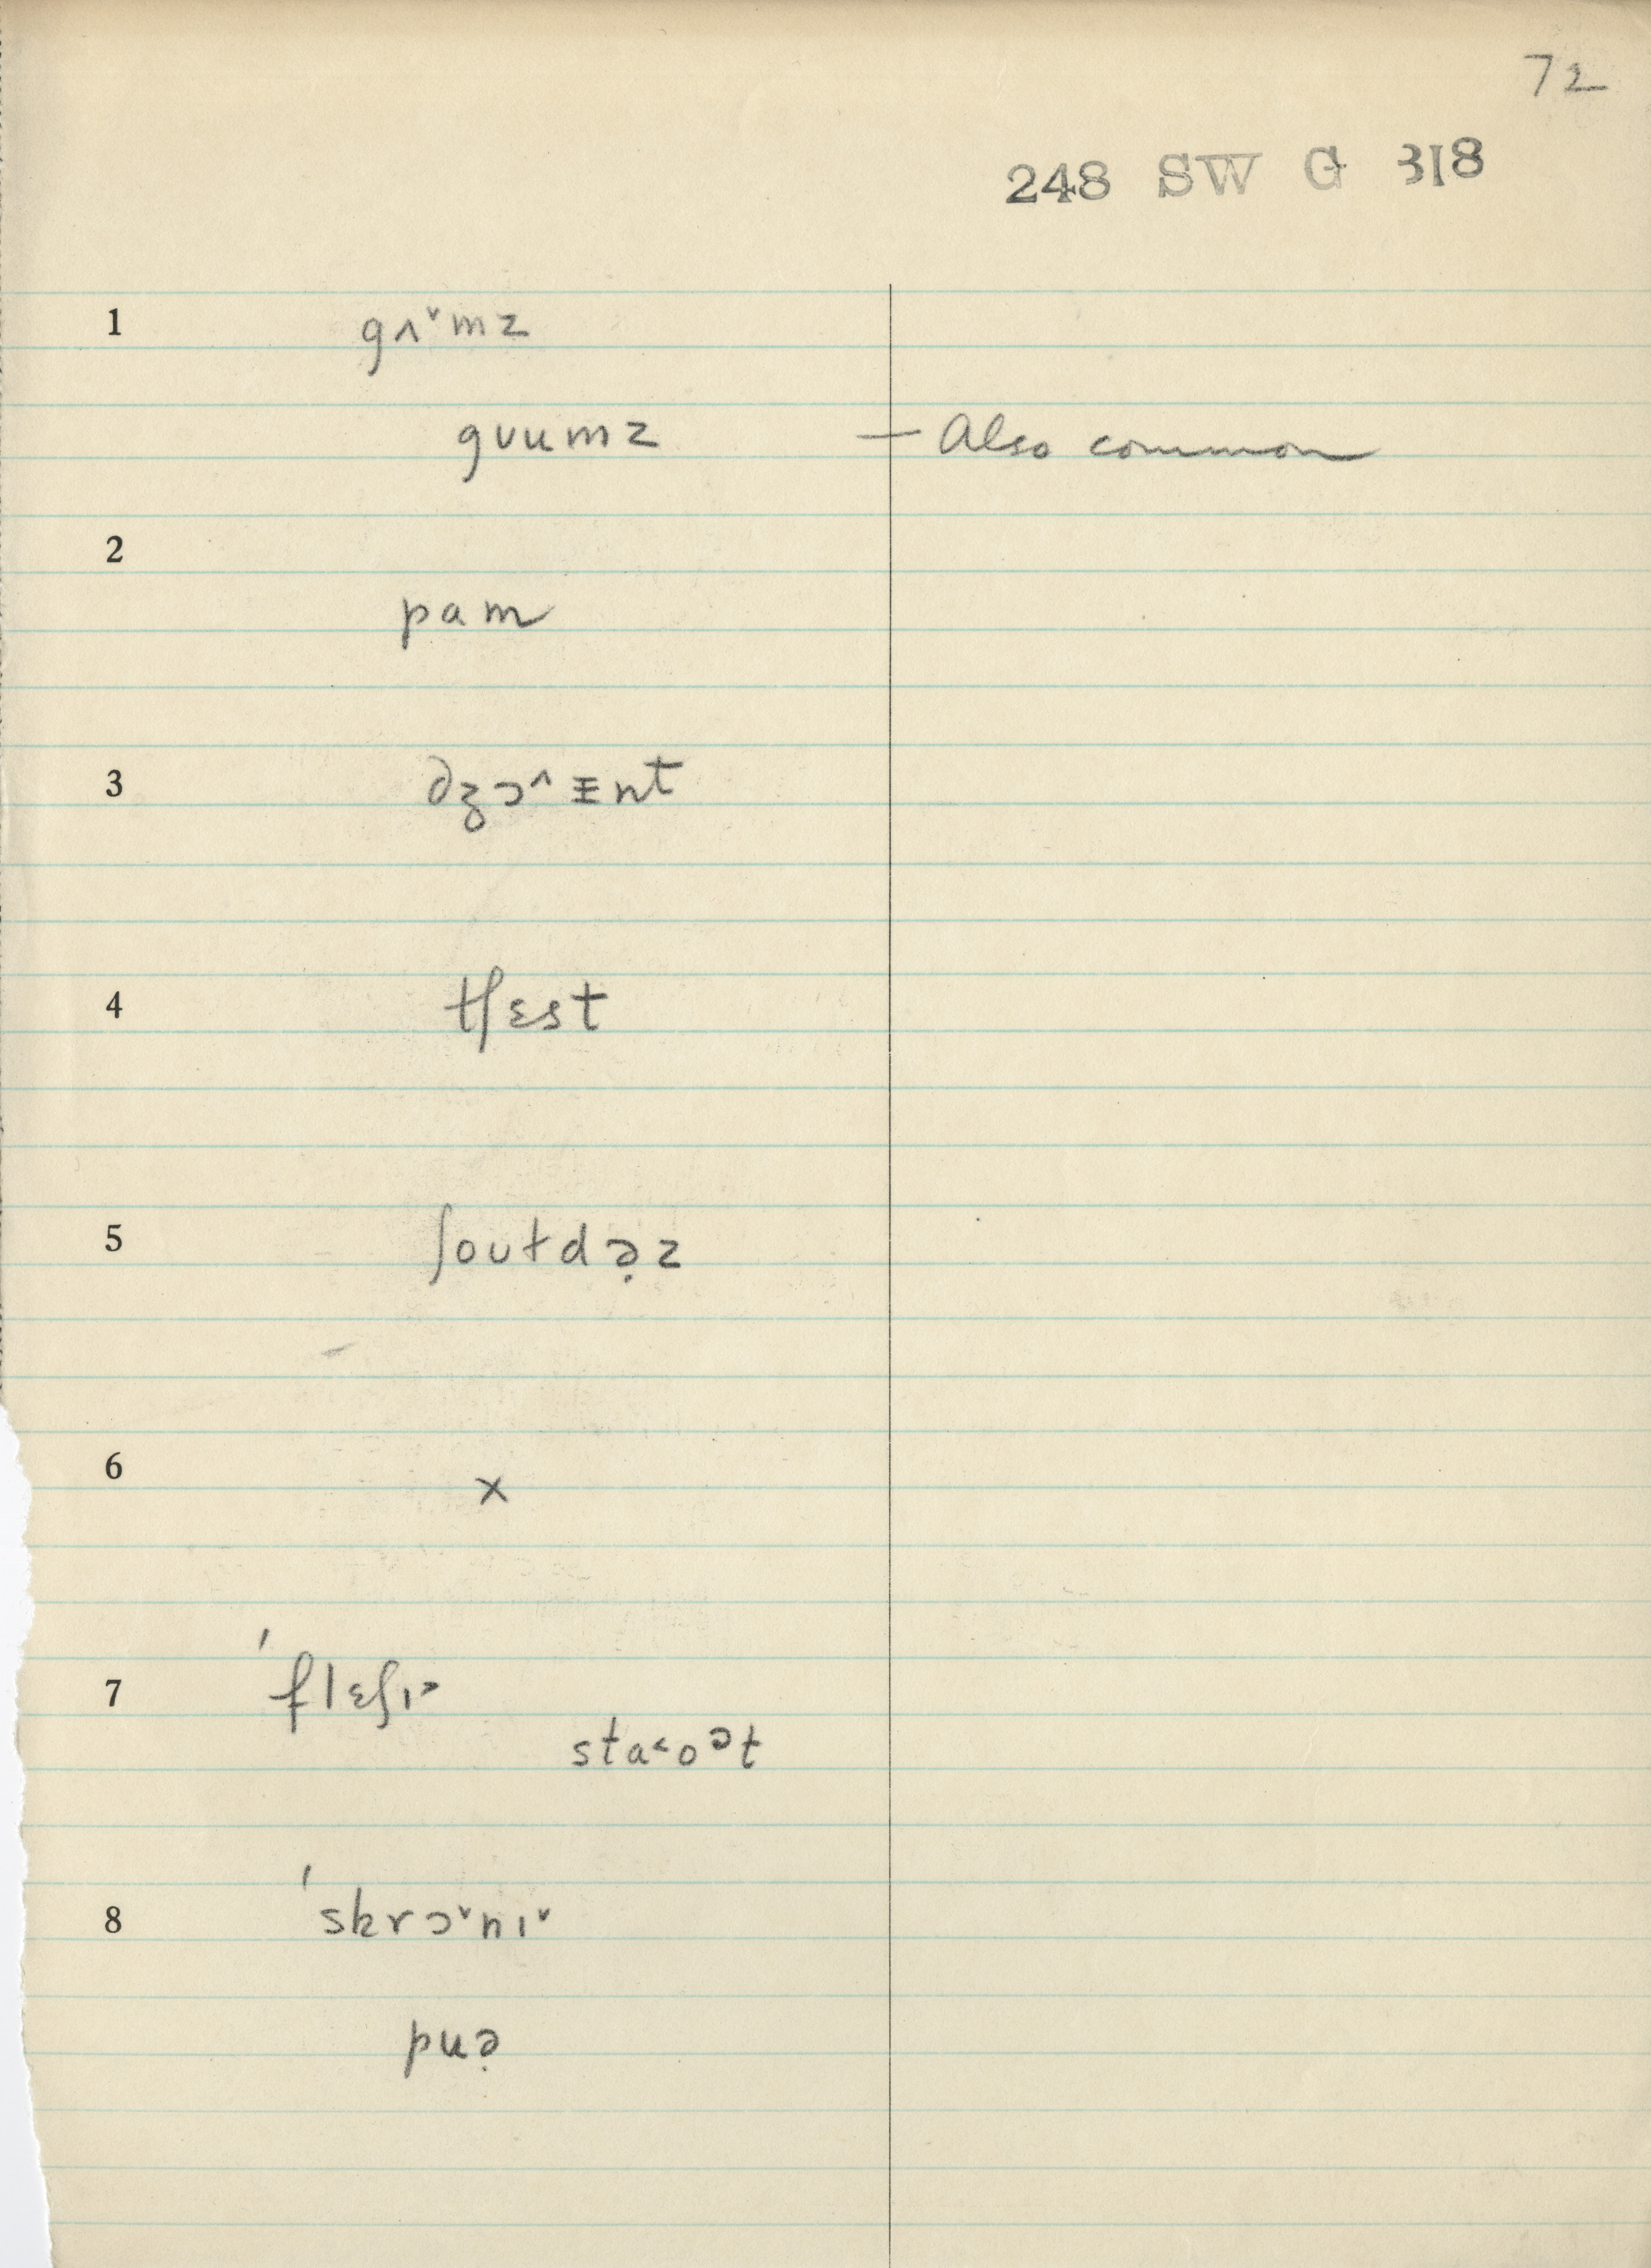 72
248 SW G 318
1 gʌ˅mz
gʊumz — Also common
2
pam
3 dʒɔ˄ɪ̵nt
4 tʃɛst
5 ʃoʊɫdə̣z
6
x
7 ˈflɛʃɪ˃
sta˂oᵊt
8 ˈskrɔ˅nɪ˅
puə̣